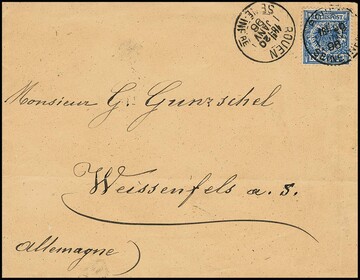 ROUEN
SEINE INFRE
Monsieur G. Gunzschel
Weissenfels a. S.
Allemagne